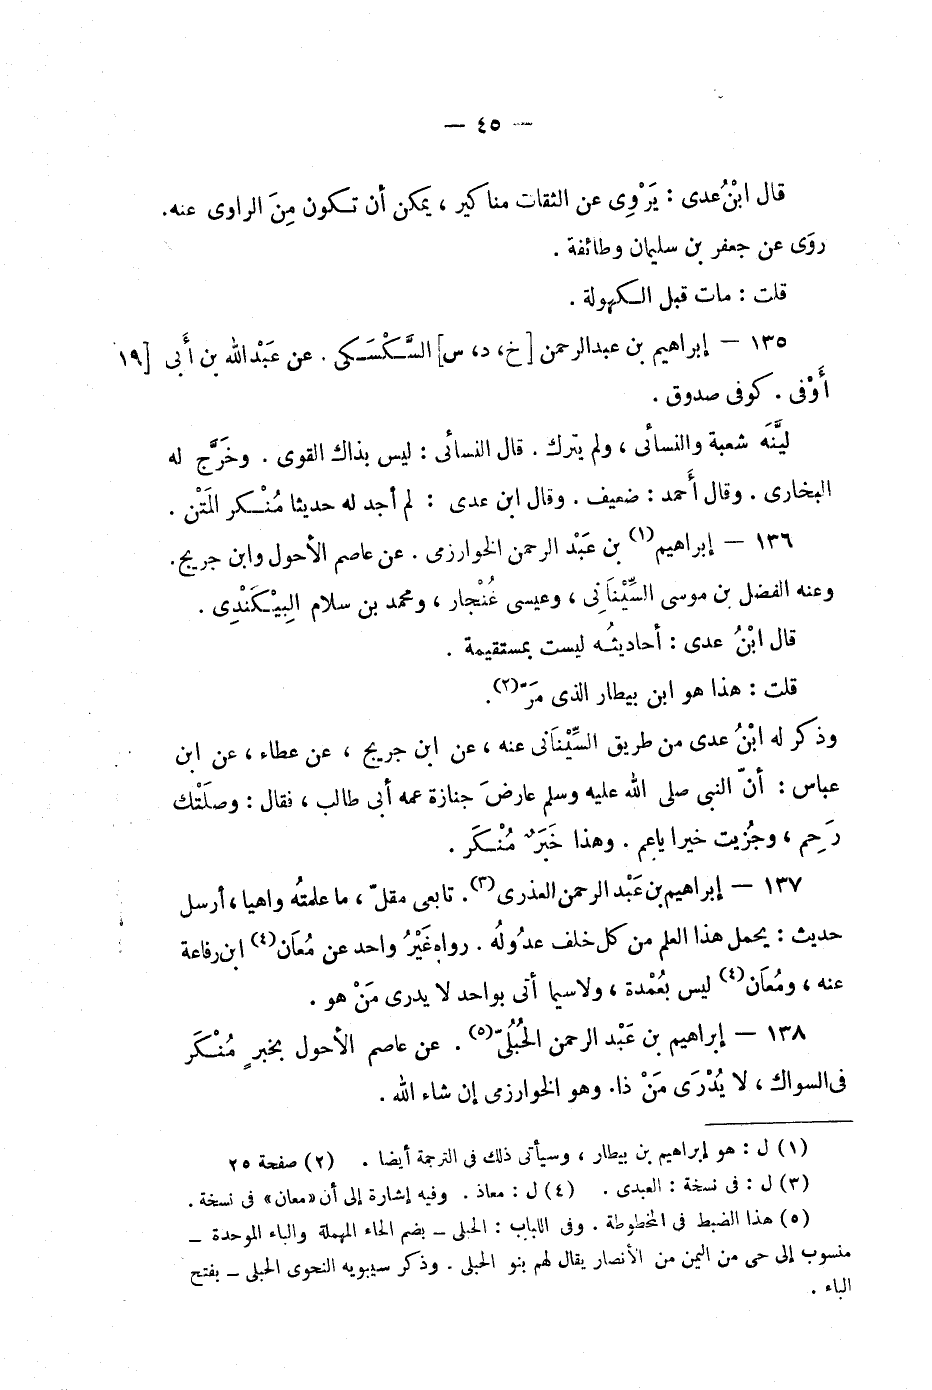 — ٤٥ —
قال ابْنُ عدى : يَرْوِى عن الثقات مناكير ، يمكن أن تكون مِنَ الراوى عنه.
روَى عن جعفر بن سليمان وطائفة .
قلت : مات قبل الكهولة .
١٣٥ — إبراهيم بن عبدالرحمن [ خ، د، س] السَّكْسَكى . عن عَبْدالله بن أَبى [١٩
أَوْفى . كوفى صدوق .
ليَّنَه شعبة والنسائى ، ولم يترك . قال النسائى : ليس بذاك القوى . وخَرَّج له
البخارى . وقال أَحمد : ضعيف . وقال ابن عدى : لم أجد له حديثا مُنْكر المَتْن .
١٣٦ — إبراهيم(١) بن عَبْد الرحمن الخوارزمى . عن عاصم الأحول وابن جريج.
وعنه الفضل بن موسى السِّيْنَانِى ، وعيسى غُنْجار ، ومحمد بن سلام البِيْكَنْدِى .
قال ابْنُ عدى : أحاديثُه ليست بمستقيمة .
قلت : هذا هو ابن بيطار الذى مَرّ(٢).
وذكر له ابْنُ عدى من طريق السِّيْنَانى عنه ، عن ابن جريج ، عن عطاء ، عن ابن
عباس : أنّ النبى صلى الله عليه وسلم عارضَ جنازة عمه أبى طالب ، فقال : وصلَتْك
رَحِم ، وجُزيت خيرا ياعم . وهذا خَبَرٌ مُنْكَر .
١٣٧ — إبراهيم بن عَبْد الرحمن العذرى(٣). تابعى مقلّ ، ما علمتُه واهيا ، أرسل
حديث : يحمل هذا العلم من كل خلف عدُولُه . رواه غَيْرُ واحد عن مُعَان(٤) ابن رفاعة
عنه ، ومُعَان(٤) ليس بعُمْدة ، ولاسيما أتى بواحد لا يدرى مَنْ هو .
١٣٨ — إبراهيم بن عَبْد الرحمن الحُبُلىّ(٥) . عن عاصم الأحول بخبرٍ مُنْكَر
فى السواك ، لا يُدْرَى مَنْ ذا. وهو الخوارزمى إن شاء الله .
(١) ل : هو إبراهيم بن بيطار ، وسيأتى ذلك فى الترجمة أيضا . (٢) صفحة ٢٥
(٣) ل : فى نسخة : العبدى . (٤) ل : معاذ . وفيه إشارة إلى أن «معان» فى نسخة .
(٥) هذا الضبط فى المخطوطة . وفى اللباب : الحبلى — بضم الحاء المهملة والباء الموحدة —
منسوب إلى حى من اليمن من الأنصار يقال لهم بنو الحبلى . وذكر سيبويه النحوى الحبلى — بفتح
الباء .